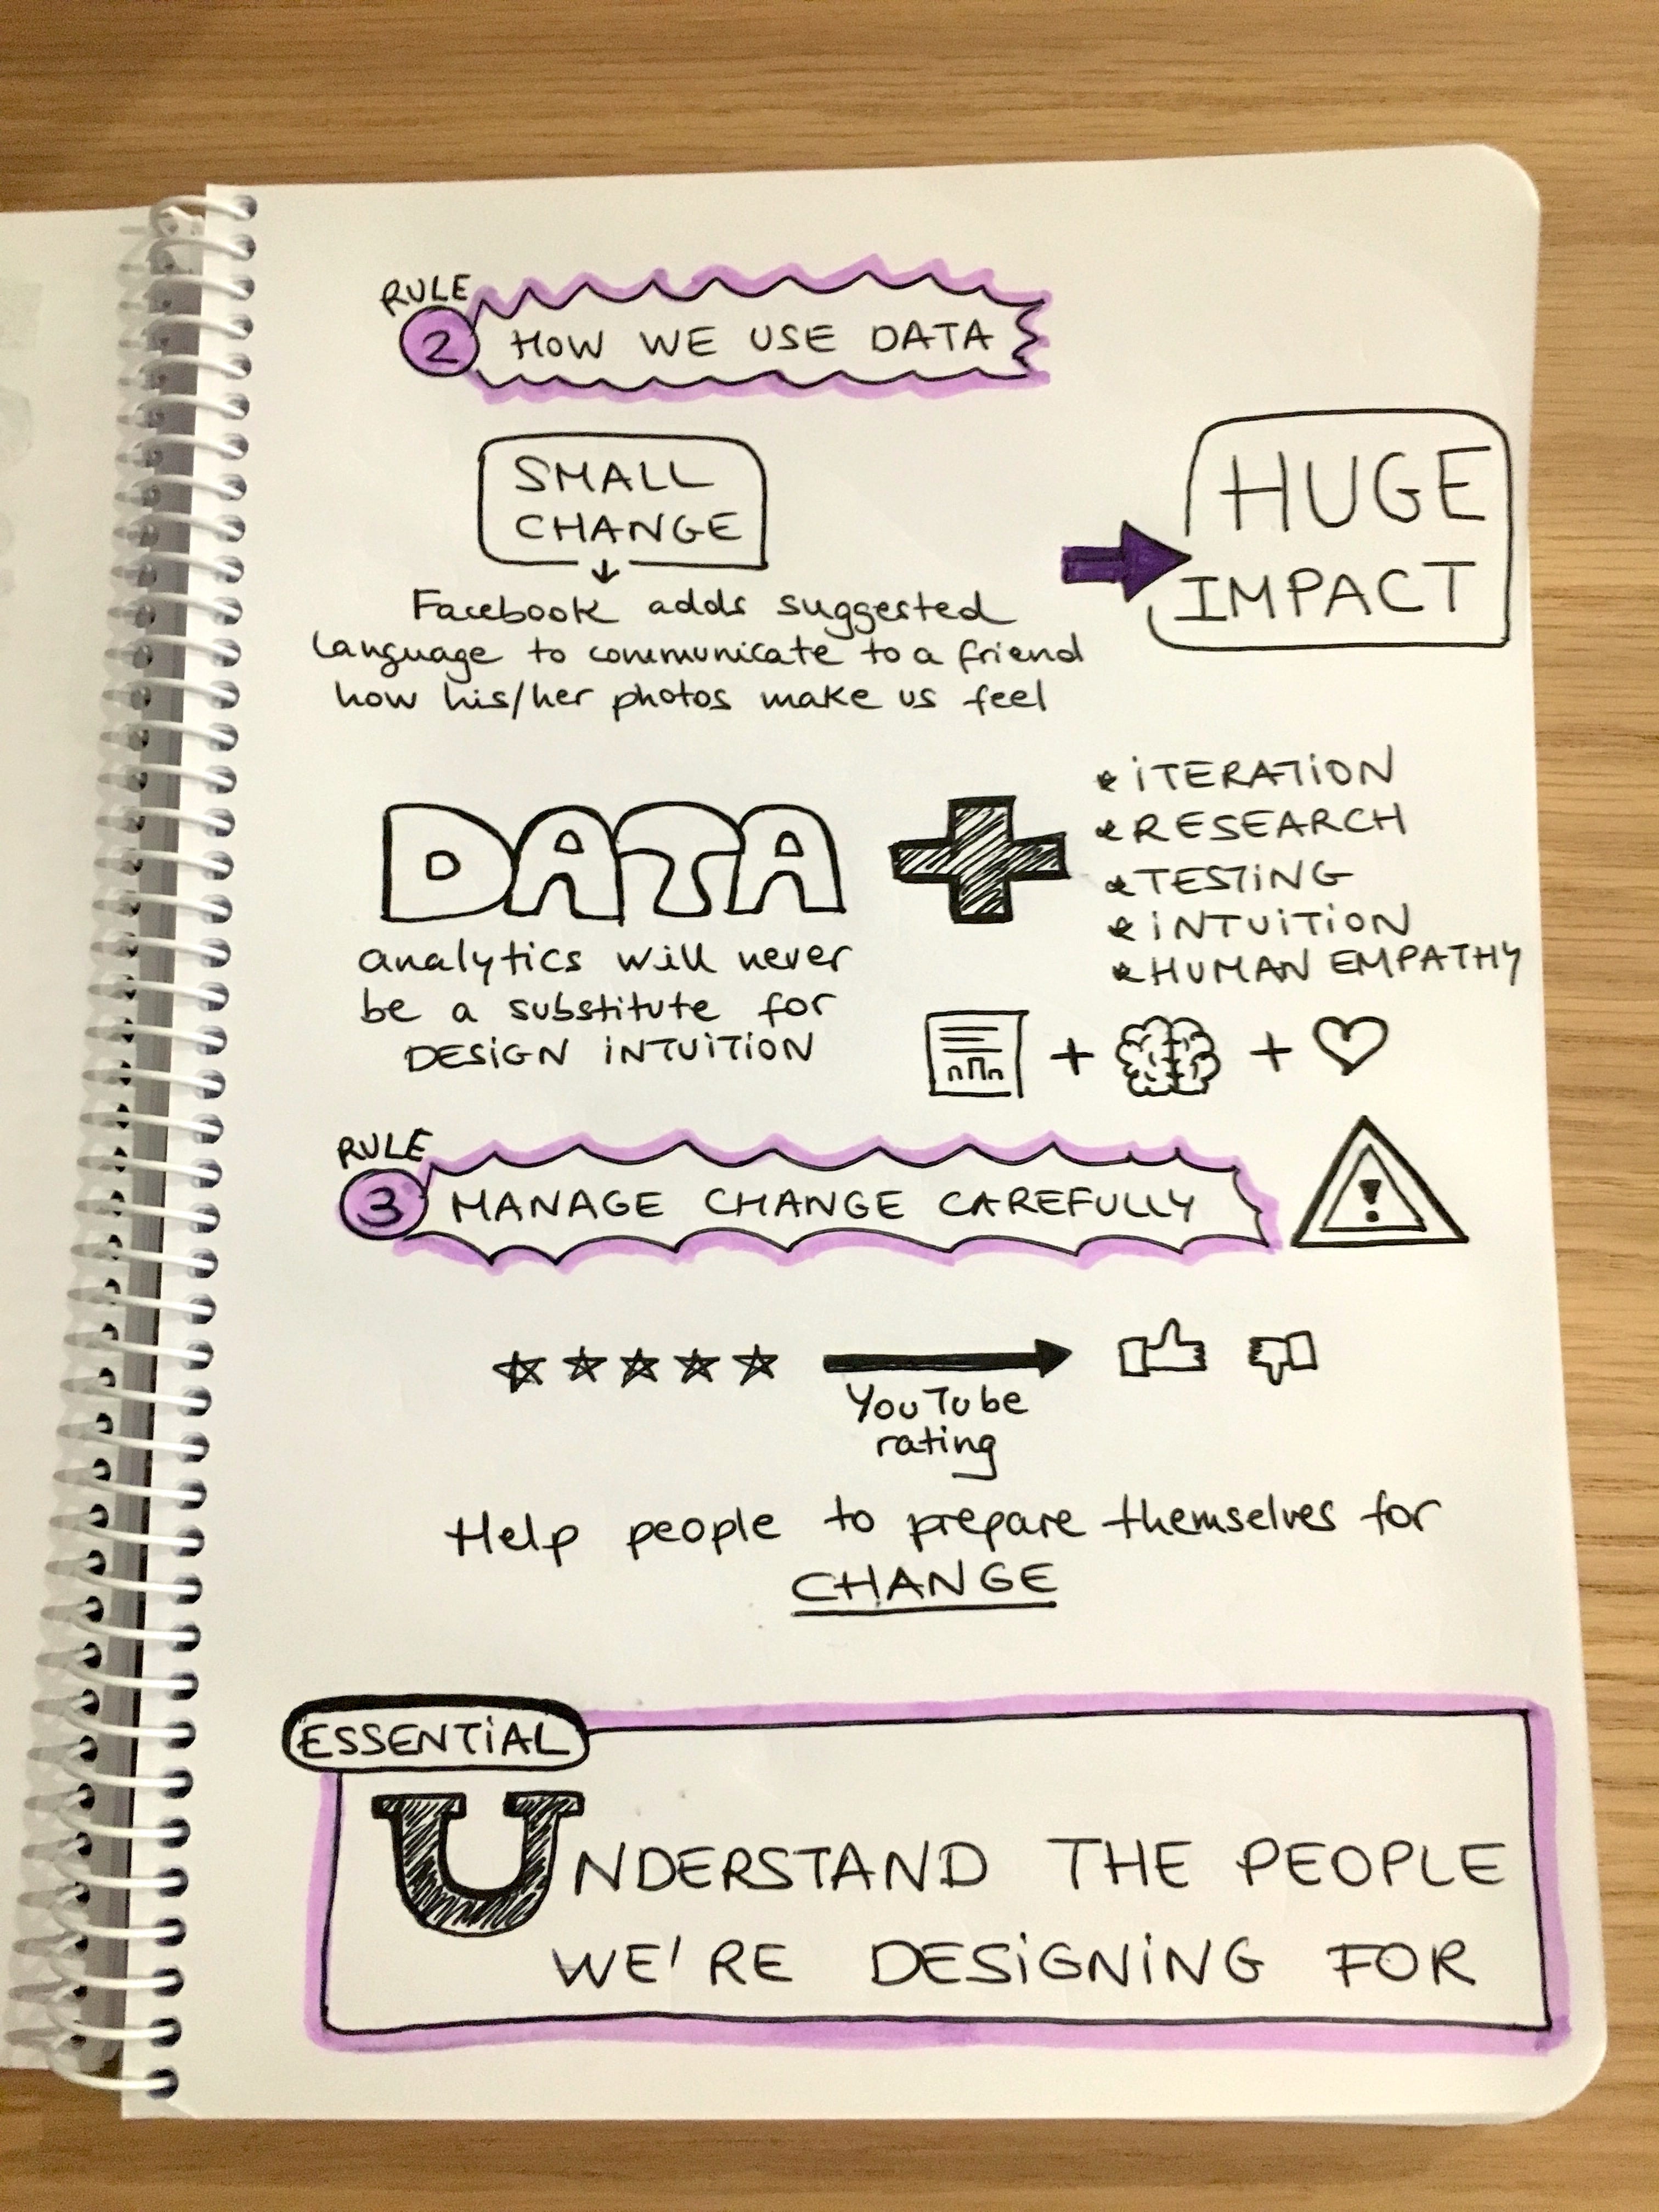 RULE
2 HOW WE USE DATA
SMALL
CHANGE
Facebook adds suggested
language to communicate to a friend
how his/her photos make us feel
HUGE
IMPACT
DATA
analytics will never
be a substitute for
DESIGN INTUITION
ITERATION
RESEARCH
TESTING
INTUITION
HUMAN EMPATHY
+ +
RULE
3 MANAGE CHANGE CAREFULLY
!
YouTube
rating
Help people to prepare themselves for
CHANGE
ESSENTIAL
UNDERSTAND THE PEOPLE
WE'RE DESIGNING FOR